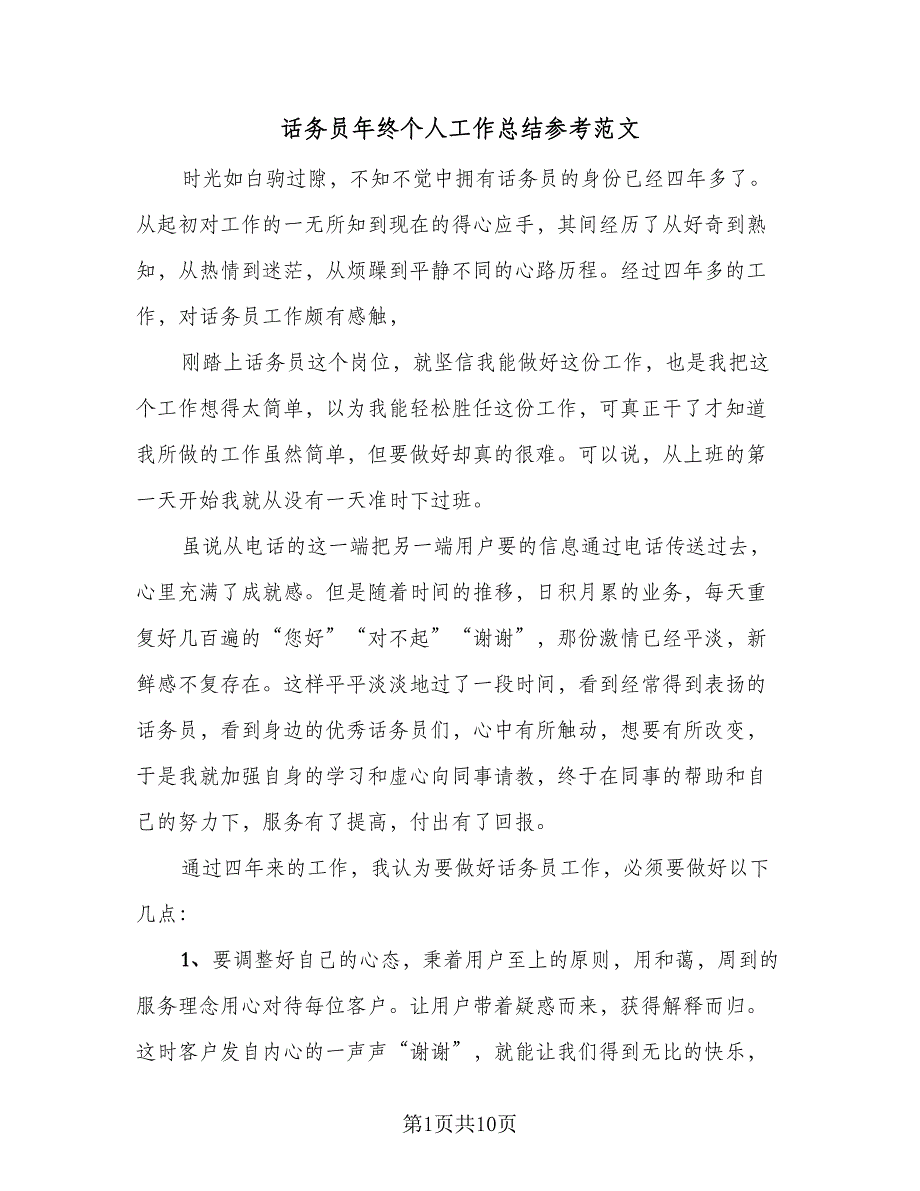 话务员年终个人工作总结参考范文
时光如白驹过隙，不知不觉中拥有话务员的身份已经四年多了。
从起初对工作的一无所知到现在的得心应手，其间经历了从好奇到熟
知，从热情到迷茫，从烦躁到平静不同的心路历程。经过四年多的工
作，对话务员工作颇有感触，
刚踏上话务员这个岗位，就坚信我能做好这份工作，也是我把这
个工作想得太简单，以为我能轻松胜任这份工作，可真正干了才知道
我所做的工作虽然简单，但要做好却真的很难。可以说，从上班的第
一天开始我就从没有一天准时下过班。
虽说从电话的这一端把另一端用户要的信息通过电话传送过去，
心里充满了成就感。但是随着时间的推移，日积月累的业务，每天重
复好几百遍的“您好”“对不起”“谢谢”，那份激情已经平淡，新
鲜感不复存在。这样平平淡淡地过了一段时间，看到经常得到表扬的
话务员，看到身边的优秀话务员们，心中有所触动，想要有所改变，
于是我就加强自身的学习和虚心向同事请教，终于在同事的帮助和自
己的努力下，服务有了提高，付出有了回报。
通过四年来的工作，我认为要做好话务员工作，必须要做好以下
几点：
1、要调整好自己的心态，秉着用户至上的原则，用和蔼，周到的
服务理念用心对待每位客户。让用户带着疑惑而来，获得解释而归。
这时客户发自内心的一声声“谢谢”，就能让我们得到无比的快乐，
第1页共10页